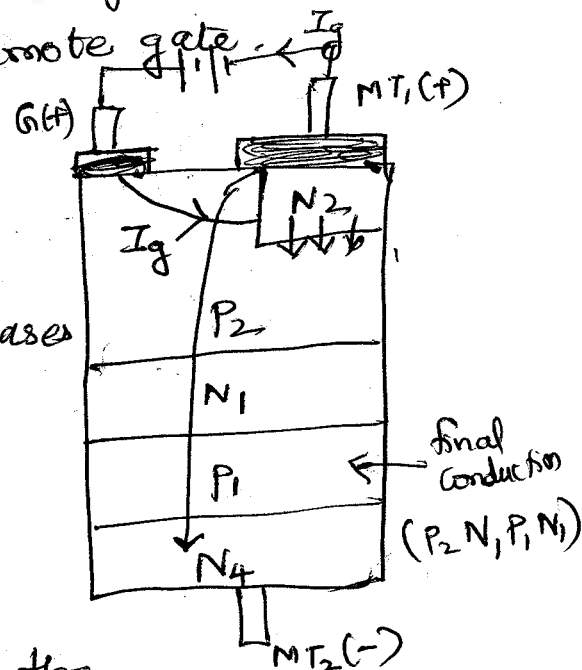 mote gate
Ig
MT1(+)
G(+)
N2
Ig
P2
ases
N1
final
conduction
P1
(P2 N1 P1 N1)
N4
MT2(-)